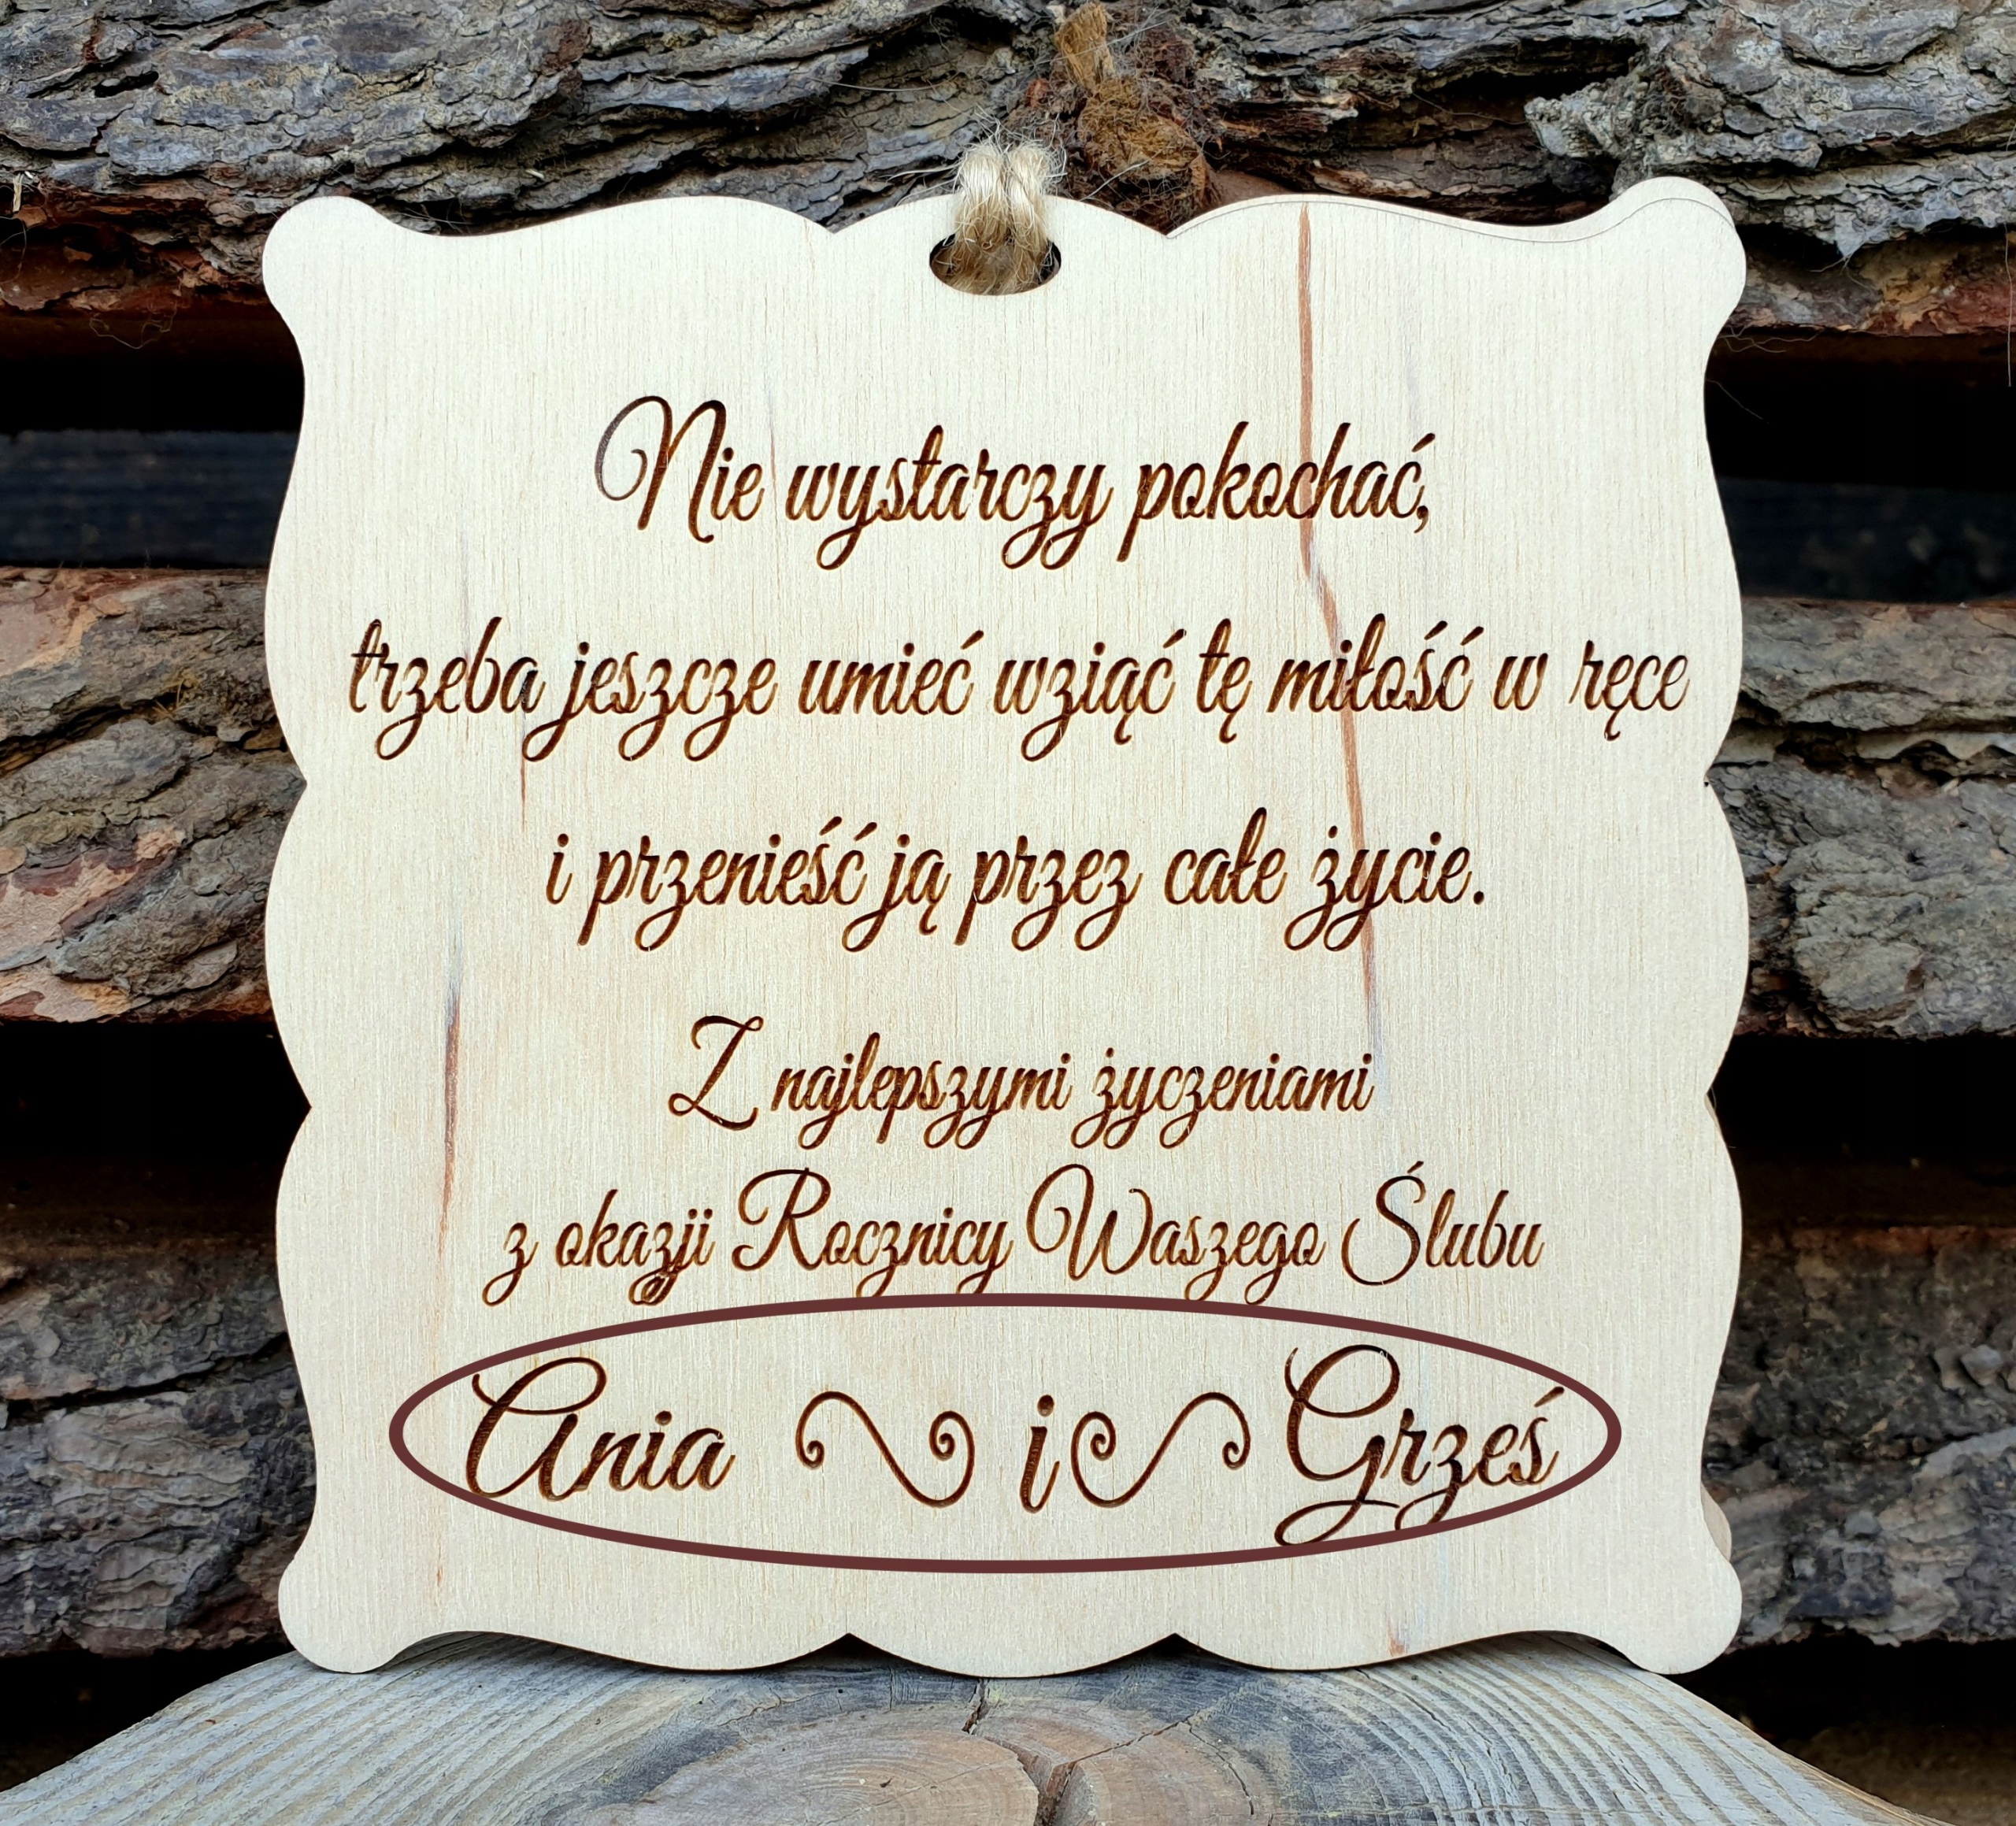 Nie wystarczy pokochać,
trzeba jeszcze umieć wziąć tę miłość w ręce
i przenieść ją przez całe życie.
Z najlepszymi życzeniami
z okazji Rocznicy Waszego Ślubu
Ania i Grześ